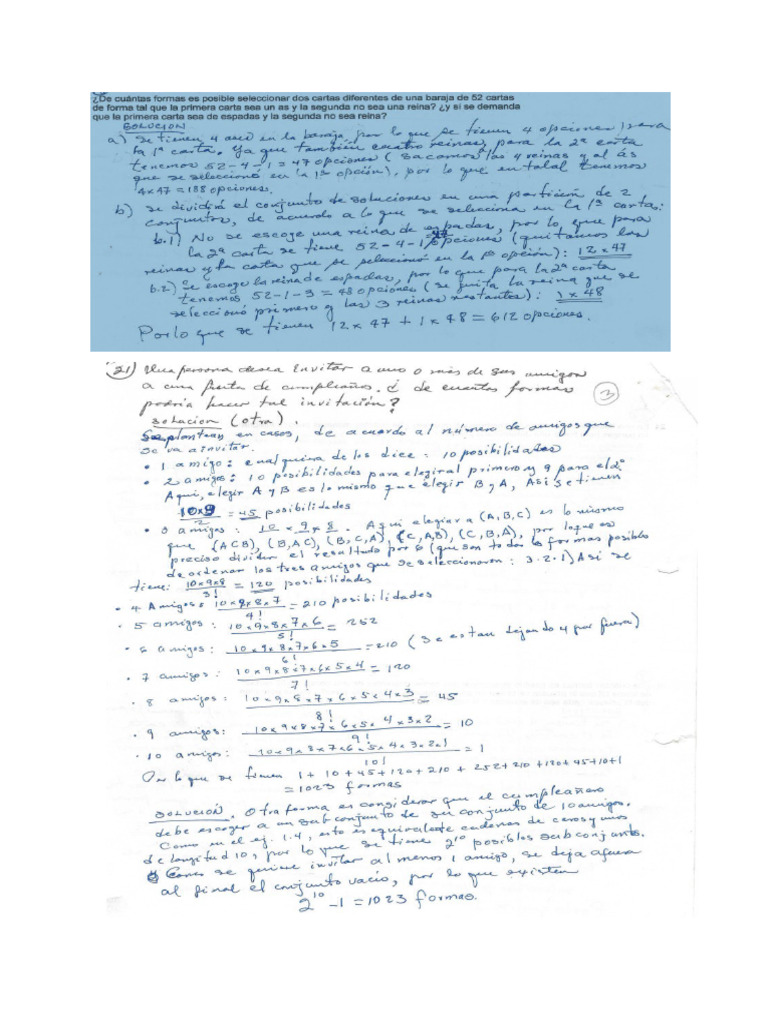 ¿De cuántas formas es posible seleccionar dos cartas diferentes de una baraja de 52 cartas
de forma tal que la primera carta sea un as y la segunda no sea una reina? ¿y si se demanda
que la primera carta sea de espadas y la segunda no sea reina?
SOLUCION
a) Se tienen 4 ases en la baraja, por lo que se tienen 4 opciones para
la 1ª carta. Ya que también cuatro reinas, para la 2ª carta
tenemos 52-4-1 = 47 opciones (sacamos las 4 reinas y al ás
que se seleccionó en la 1ª opción), por lo que en total tenemos
4x47 = 188 opciones.
b) se dividirá el conjunto de soluciones en una partición de 2
conjuntos, de acuerdo a lo que se selecciona en la 1ª carta:
b.1) No se escoge una reina de espadas, por lo que para
la 2ª carta se tiene 52-4-1 opciones (quitamos las
reinas y la carta que se seleccionó en la 1ª opción): 12x47
b.2) Se escoge la reina de espadas, por lo que para la 2ª carta
tenemos 52-1-3 = 48 opciones (se quita la reina que se
seleccionó primero y las 3 reinas restantes): 1x48
Por lo que se tienen 12x47 + 1x48 = 612 opciones.
21) Una persona desea invitar a uno o más de sus amigos
a una fiesta de cumpleaños. ¿ de cuantas formas
podría hacer tal invitación?
3
solucion (otra).
Se plantean en casos, de acuerdo al número de amigos que
se va a invitar.
• 1 amigo: cualquiera de los dice: 10 posibilidades
• 2 amigos: 10 posibilidades para elegir al primero y 9 para el 2º
Aqui, elegir A y B es lo mismo que elegir B y A, Asi se tienen
10x9/2 = 45 posibilidades
• 3 amigos: 10 x 9 x 8. Aqui elegir a (A,B,C) es lo mismo
que (ACB), (B,AC), (B,C,A), (C,A,B), (C,B,A), por lo que es
preciso dividir el resultado por 6 (que son todas las formas posibles
de ordenar los tres amigos que se seleccionaron: 3·2·1) Asi se
tiene: 10x9x8/3! = 120 posibilidades
• 4 Amigos: 10x9x8x7/4! = 210 posibilidades
• 5 amigos: 10x9x8x7x6/5! = 252
• 6 amigos: 10x9x8x7x6x5/6! = 210 (se estan dejando 4 por fuera)
• 7 amigos: 10x9x8x7x6x5x4/7! = 120
• 8 amigos: 10x9x8x7x6x5x4x3/8! = 45
• 9 amigos: 10x9x8x7x6x5x4x3x2/9! = 10
• 10 amigos: 10x9x8x7x6x5x4x3x2x1/10! = 1
Por lo que se tienen 1+10+45+120+210+252+210+120+45+10+1
= 1023 formas
SOLUCIÓN. Otra forma es considerar que el cumpleañero
debe escoger a un subconjunto de su conjunto de 10 amigos.
Como en el ej. 1.4, esto es equivalente cadenas de ceros y unos
de longitud 10, por lo que se tiene 2¹⁰ posibles subconjunto.
Como se quiere invitar al menos 1 amigo, se deja afuera
al final el conjunto vacío, por lo que existen
2¹⁰ -1 = 1023 formas.